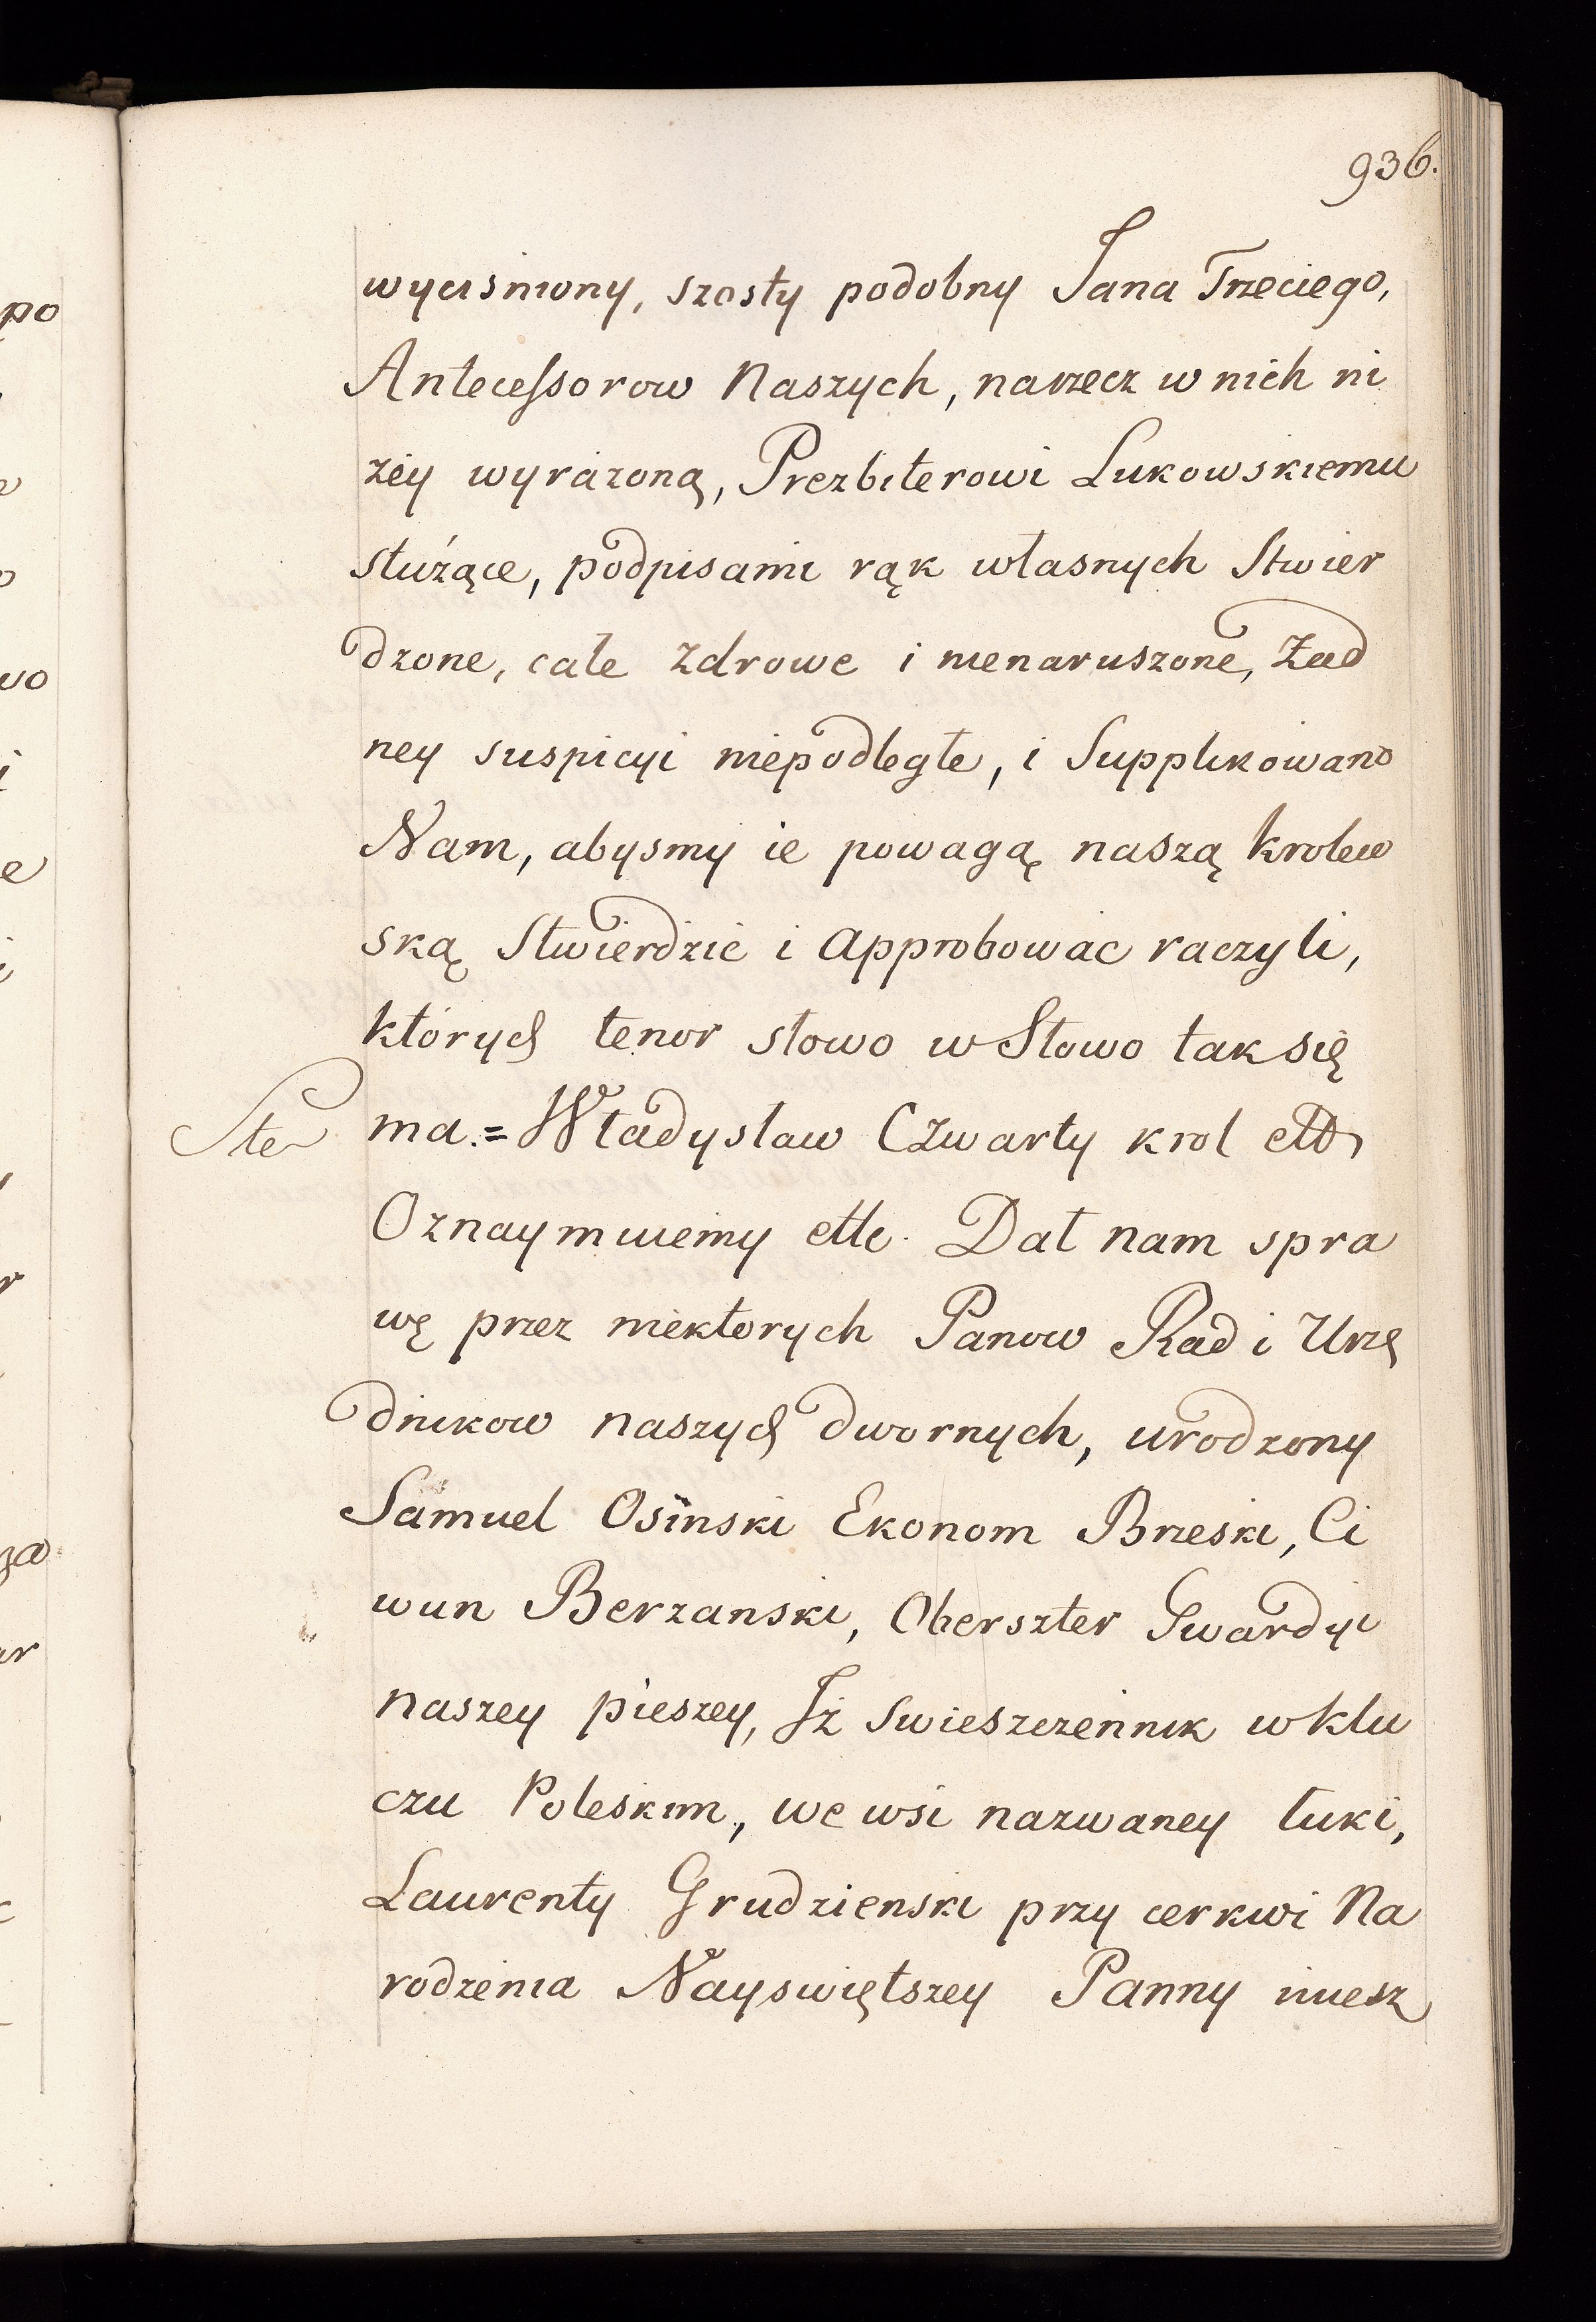 936.
wycisniony, szosty podobny Jana Trzeciego,
Antecessorow Naszych, narzecz w nich ni
zéy wyrazoną, Prezbiterowi Łukowskiemu
służące, podpisami rąk własnych Stwier
dzone, całe zdrowe i nienaruszone, Żad
ney suspicyi niepodległe, i Supplikowano
Nam, abysmy ie powagą naszą krolew
ską Stwierdzić i Approbować raczyli,
których tenor słowo w Słowo tak się
Ste
ma.= Władysław Czwarty krol ettc
Oznaymuiemy ettc. Dał nam spra
wę przez niektorych Panow Rad i Urzę
dnikow naszych dwornych, urodzony
Samuel Osinski Ekonom Brzeski, Ci
wun Berzanski, Oberszter Gwardyi
naszey pieszey, Jż swieszczennik w klu
czu Poleskim, we wsi nazwaney Łuki,
Laurenty Grudzienski przy cerkwi Na
rodzenia Nayswiętszey Panny miesz
po
wo
i
e
za
ar